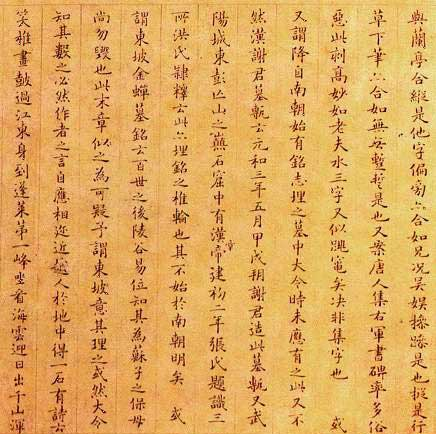 與蘭亭合縱是他字偏旁亦合如兄況吳娛是也是行
草下筆亦合如無暫是也又案唐人集右軍書碑率多俗
惡此刻高妙如老夫水三字又似興竈矣決非集字也 或
又謂降自南朝始有銘志埋之墓中大令時未應有此又不
然漢謝君墓甎云元和三年五月甲戌朔謝君造此墓甎又武
陽城東彭亾山之巔石窟中有漢章帝建初二年張氏題識三
所洪氏隸釋云此亦埋銘之椎輪也其不始於南朝明矣 或
謂東坡金蟬墓銘云百世之後陵谷易位知其為蘇子之保母
尚勿毀也此末章似之為可疑予謂東坡意其理之或然大令
知其數之必然作者之言自應相近近越人於地中得一石有詩云
笑雅畫皷過江東身到蓬萊第一峰坐看海雲迎日出千山渾